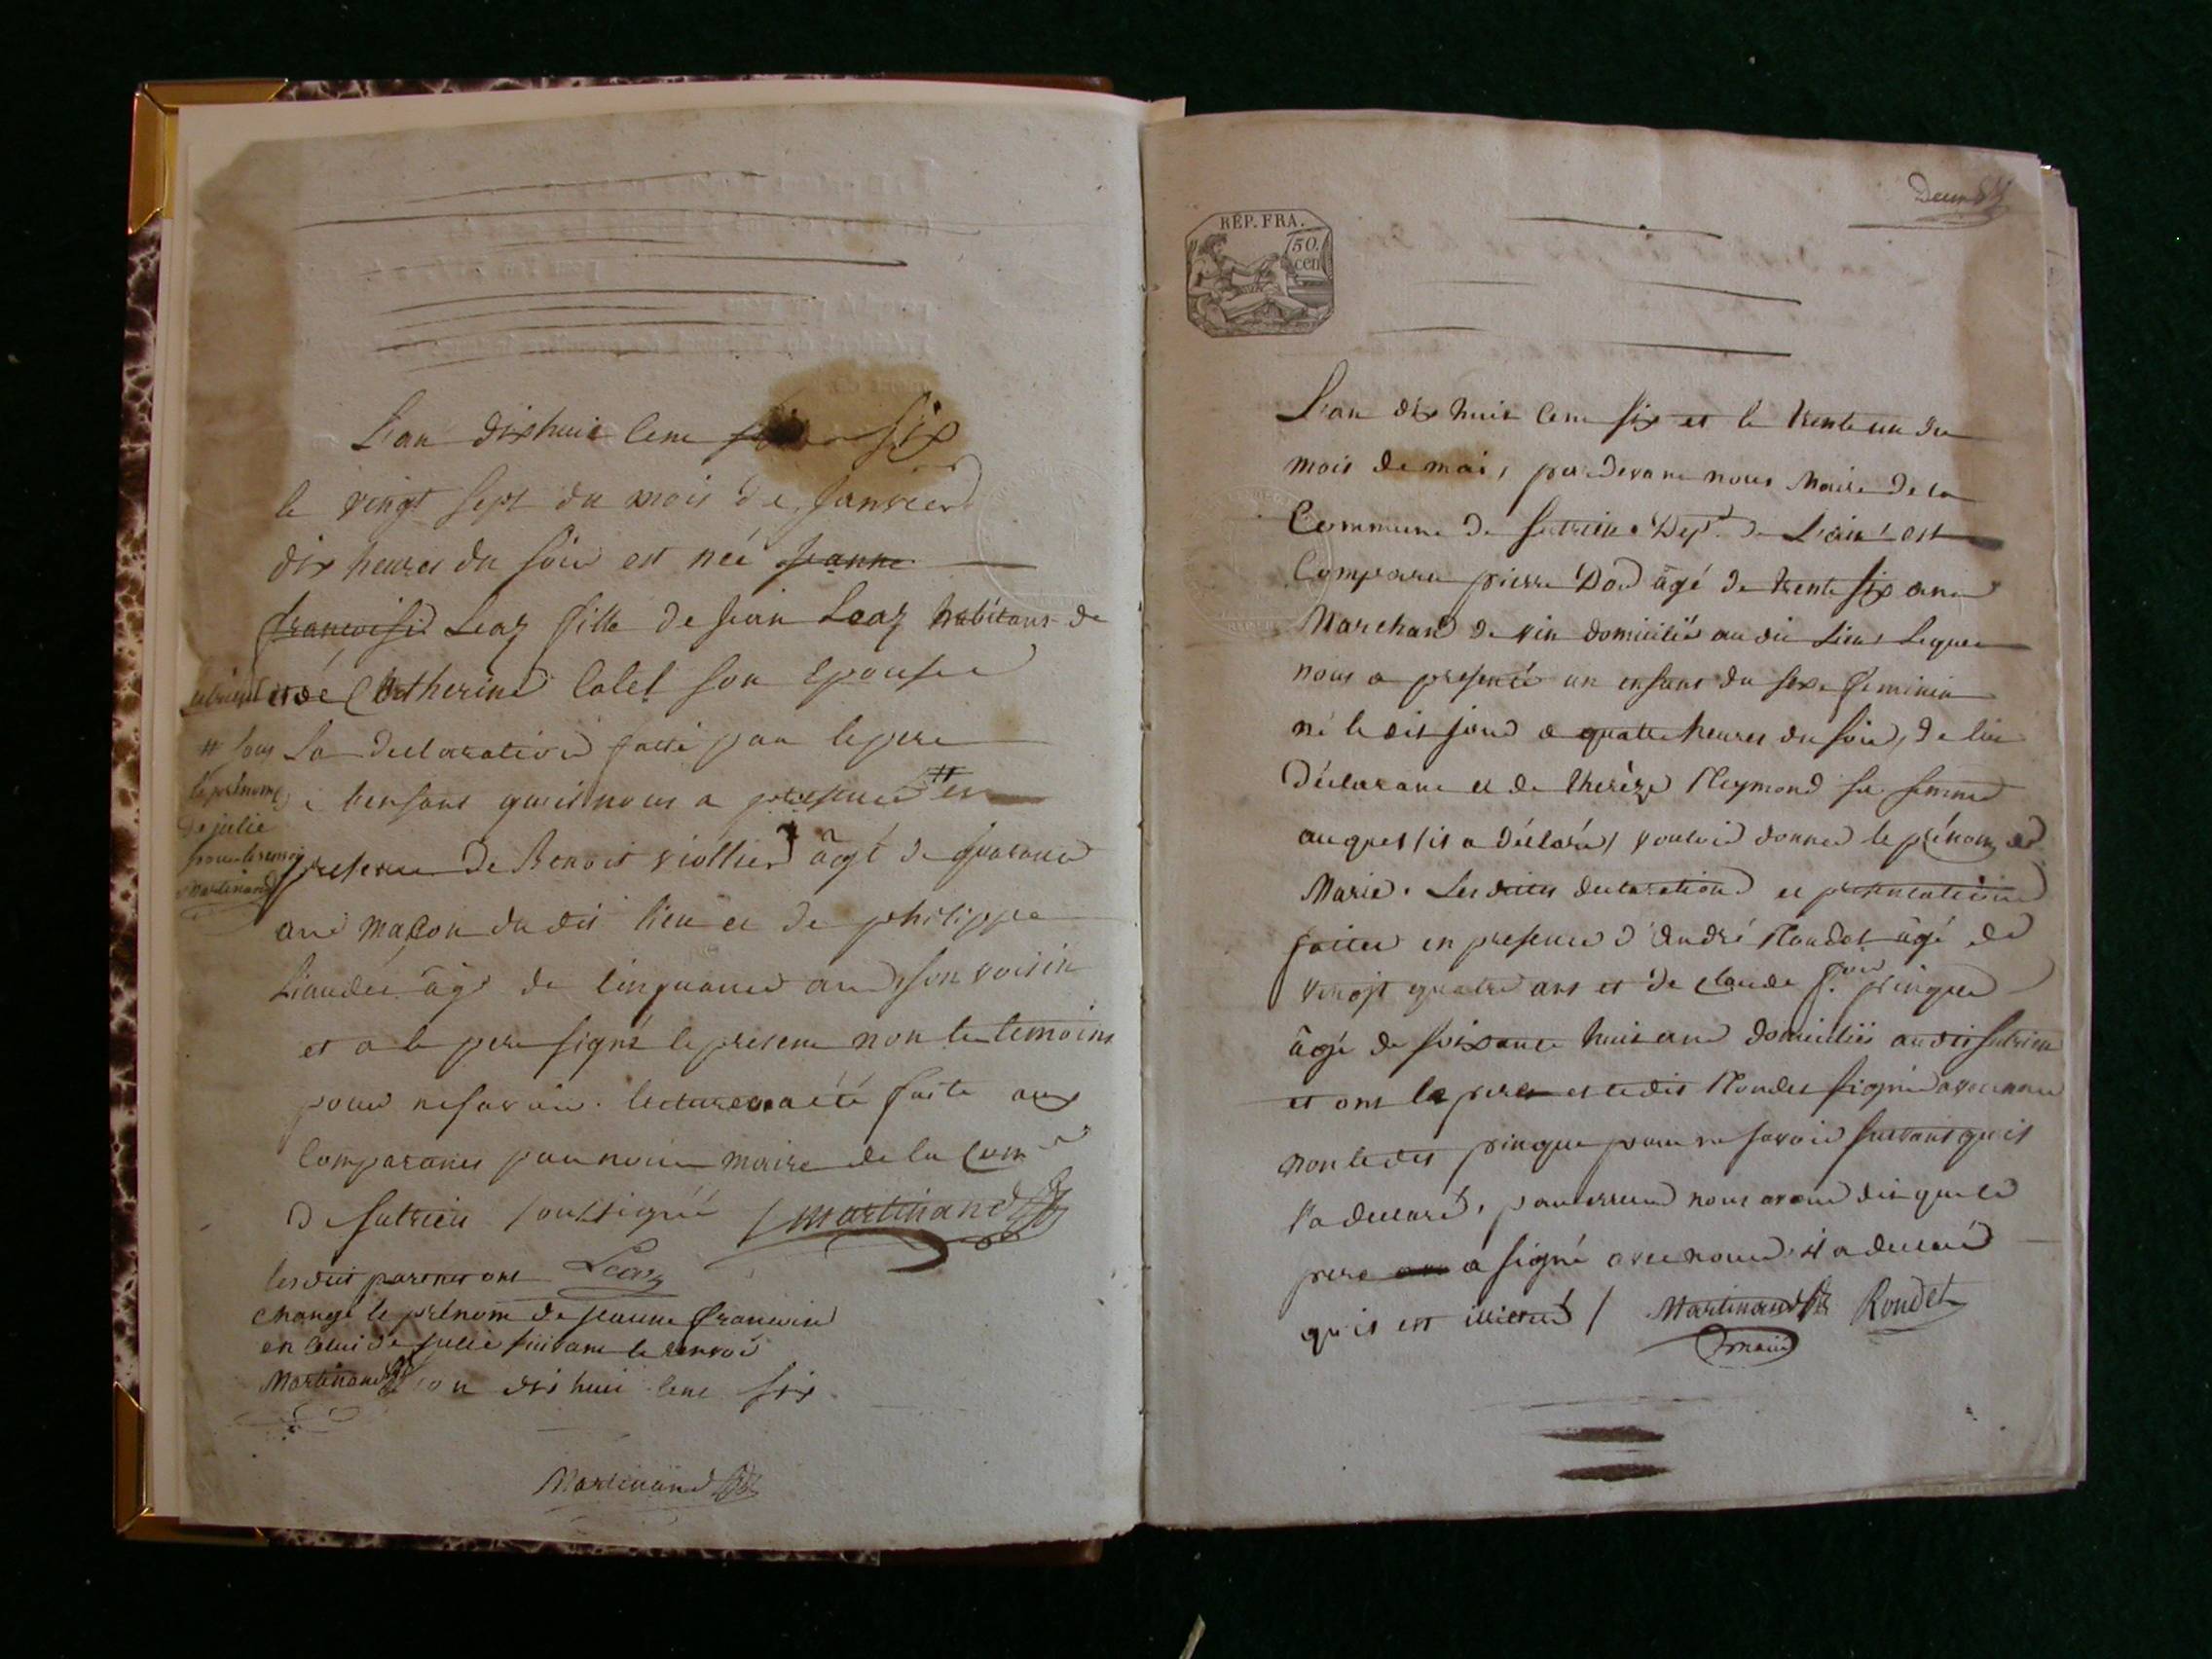 L'an dixhuit cent six
le vingt sept du mois de Janvier
dix heures du soir est née Jeanne
françoise Leaz fille de Jean Leaz habitans de
Catherine Colet son Epouse
# sous
le prénom
de julie
pour le renvoi
Martinand
La declaration faite par le pere
l'enfant qu'il nous a presenté # en
presence de Benoit viollier âgé de quarante
ans maçon du dit lieu et de philippe
âgé de cinquante ans son voisin
et a le pere signé le present non les temoins
pour ne savoir. lecture a été faite aux
Comparants par nous maire de la Com
de Sutrieu soussigné Martinand
les dits parents ont Leaz
changé le prénom de jeanne françoise
en celui de julie suivant le renvoi
Martinand l'an dix huit cent six
Martinand
REP. FRA.
50.
cen
L'an dix huit cent six et le trente un du
mois de mai, pardevant nous Maire de la
Commune de Sutrieu Dept. de L'ain est
Comparu pierre Dod âgé de trente six ans
Marchand de vin domicilié au dit Lieu Lequel
nous a presenté un enfant du sexe feminin
né le dit jour a quatre heures du soir, de lui
Déclarant et de therèze Reymond sa femme
auquel il a déclaré vouloir donner le prénom de
Marie. Les dites declaration et presentation
faites en presence d'andré Rondet âgé de
vingt quatre ans et de claude f.ois pingue
âgé de soixante huit ans domiciliés au dit Sutrieu
et ont le pere et le dit Rondet signé avec nous
non le dit pingue pour ne savoir suivant qu'il
l'a declaré, par erreur nous avons dit que le
pere a signé avec nous il a declaré
qu'il est illiteré / Martinand Rondet
maire